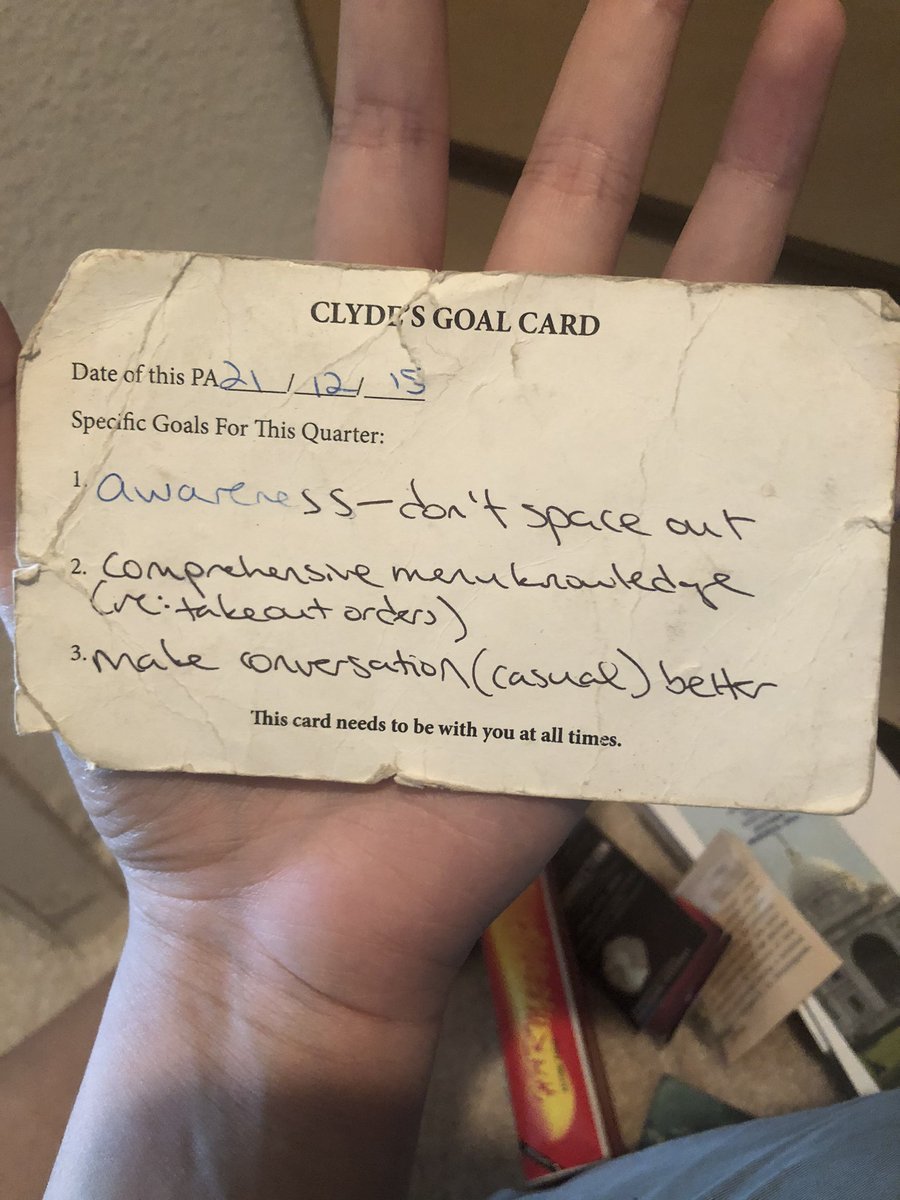 CLYDE'S GOAL CARD
Date of this PA 21 / 12 / 15
Specific Goals For This Quarter:
1. awareness - don't space out
2. comprehensive menu knowledge
(re: takeout orders)
3. make conversation (casual) better
This card needs to be with you at all times.